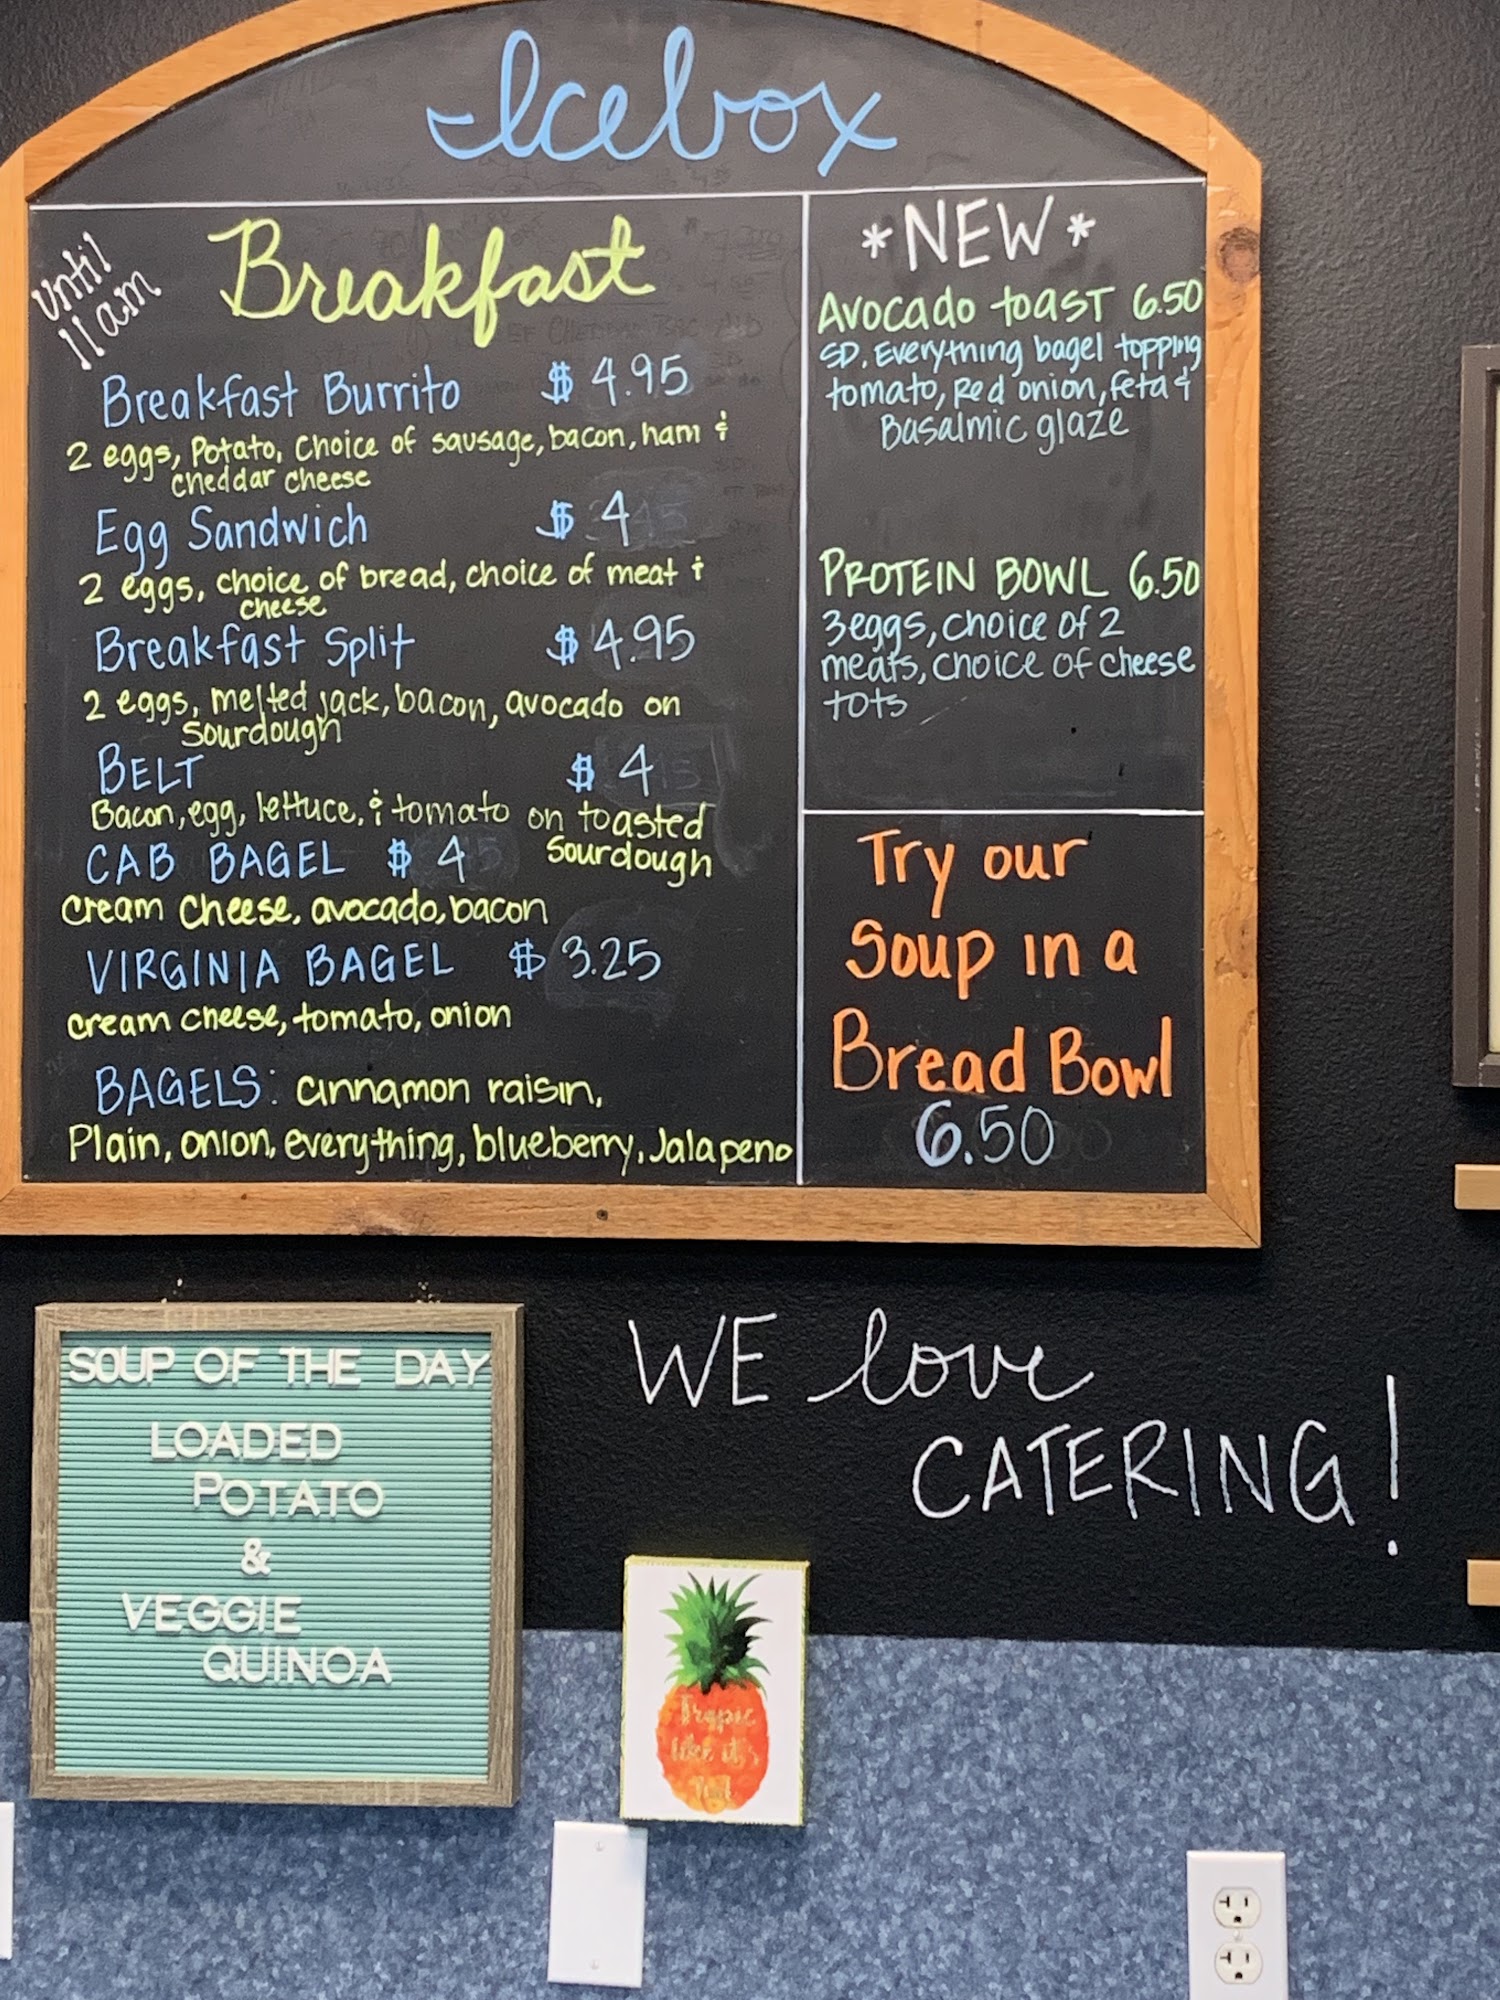 Icebox
until
11 am
Breakfast
Breakfast Burrito $ 4.95
2 eggs, Potato, Choice of sausage, bacon, ham &
cheddar cheese
Egg Sandwich $ 4
2 eggs, choice of bread, choice of meat &
cheese
Breakfast Split $ 4.95
2 eggs, melted jack, bacon, avocado on
Sourdough
BELT $ 4
Bacon, egg, lettuce, & tomato on toasted
Sourdough
CAB BAGEL $ 4
cream cheese, avocado, bacon
VIRGINIA BAGEL $ 3.25
cream cheese, tomato, onion
BAGELS: cinnamon raisin,
Plain, onion, everything, blueberry, Jalapeno
*NEW*
Avocado toast 6.50
SD. Everything bagel topping
tomato, Red onion, feta &
Basalmic glaze
PROTEIN BOWL 6.50
3eggs, choice of 2
meats, choice of cheese
tots
Try our
Soup in a
Bread Bowl
6.50
SOUP OF THE DAY
LOADED
POTATO
&
VEGGIE
QUINOA
WE love
CATERING!
Tropic
like it's